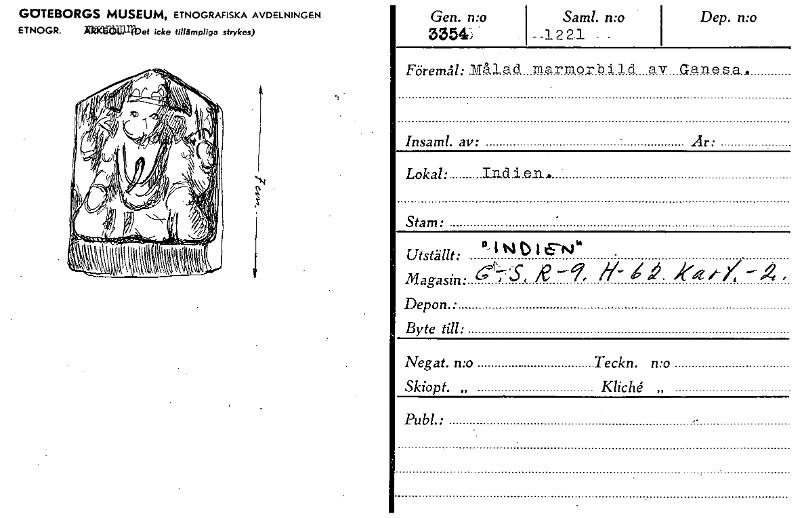 GÖTEBORGS MUSEUM, ETNOGRAFISKA AVDELNINGEN
ETNOGR. ARKEOL. (Det icke tillämpliga strykes)
7 cm.
Gen. n:o Saml. n:o Dep. n:o
3354 1221
Föremål: Målad marmorbild av Ganesa.
Insaml. av: År:
Lokal: Indien.
Stam:
Utställt: "INDIEN"
Magasin: G-S. R-9. H-62. Kart.-2.
Depon.:
Byte till:
Negat. n:o Teckn. n:o
Skiopt. „ Kliché „
Publ.: